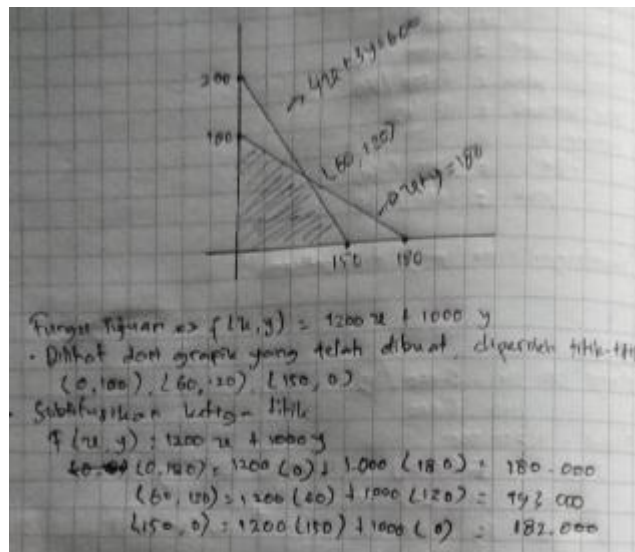 4x + 3y = 600
200
180
(60, 120)
x + y = 180
150 180
Fungsi Tujuan => f(x, y) = 1200 x + 1000 y
• Dilihat dari grapik yang telah dibuat, diperoleh titik-tit
(0, 180), (60, 120), (150, 0)
• Subtitusikan ketiga titik
f(x, y) = 1200 x + 1000 y
(0, 180) = 1200 (0) + 1.000 (180) = 180.000
(60, 120) = 1200 (60) + 1000 (120) = 192.000
(150, 0) = 1200 (150) + 1000 (0) = 182.000